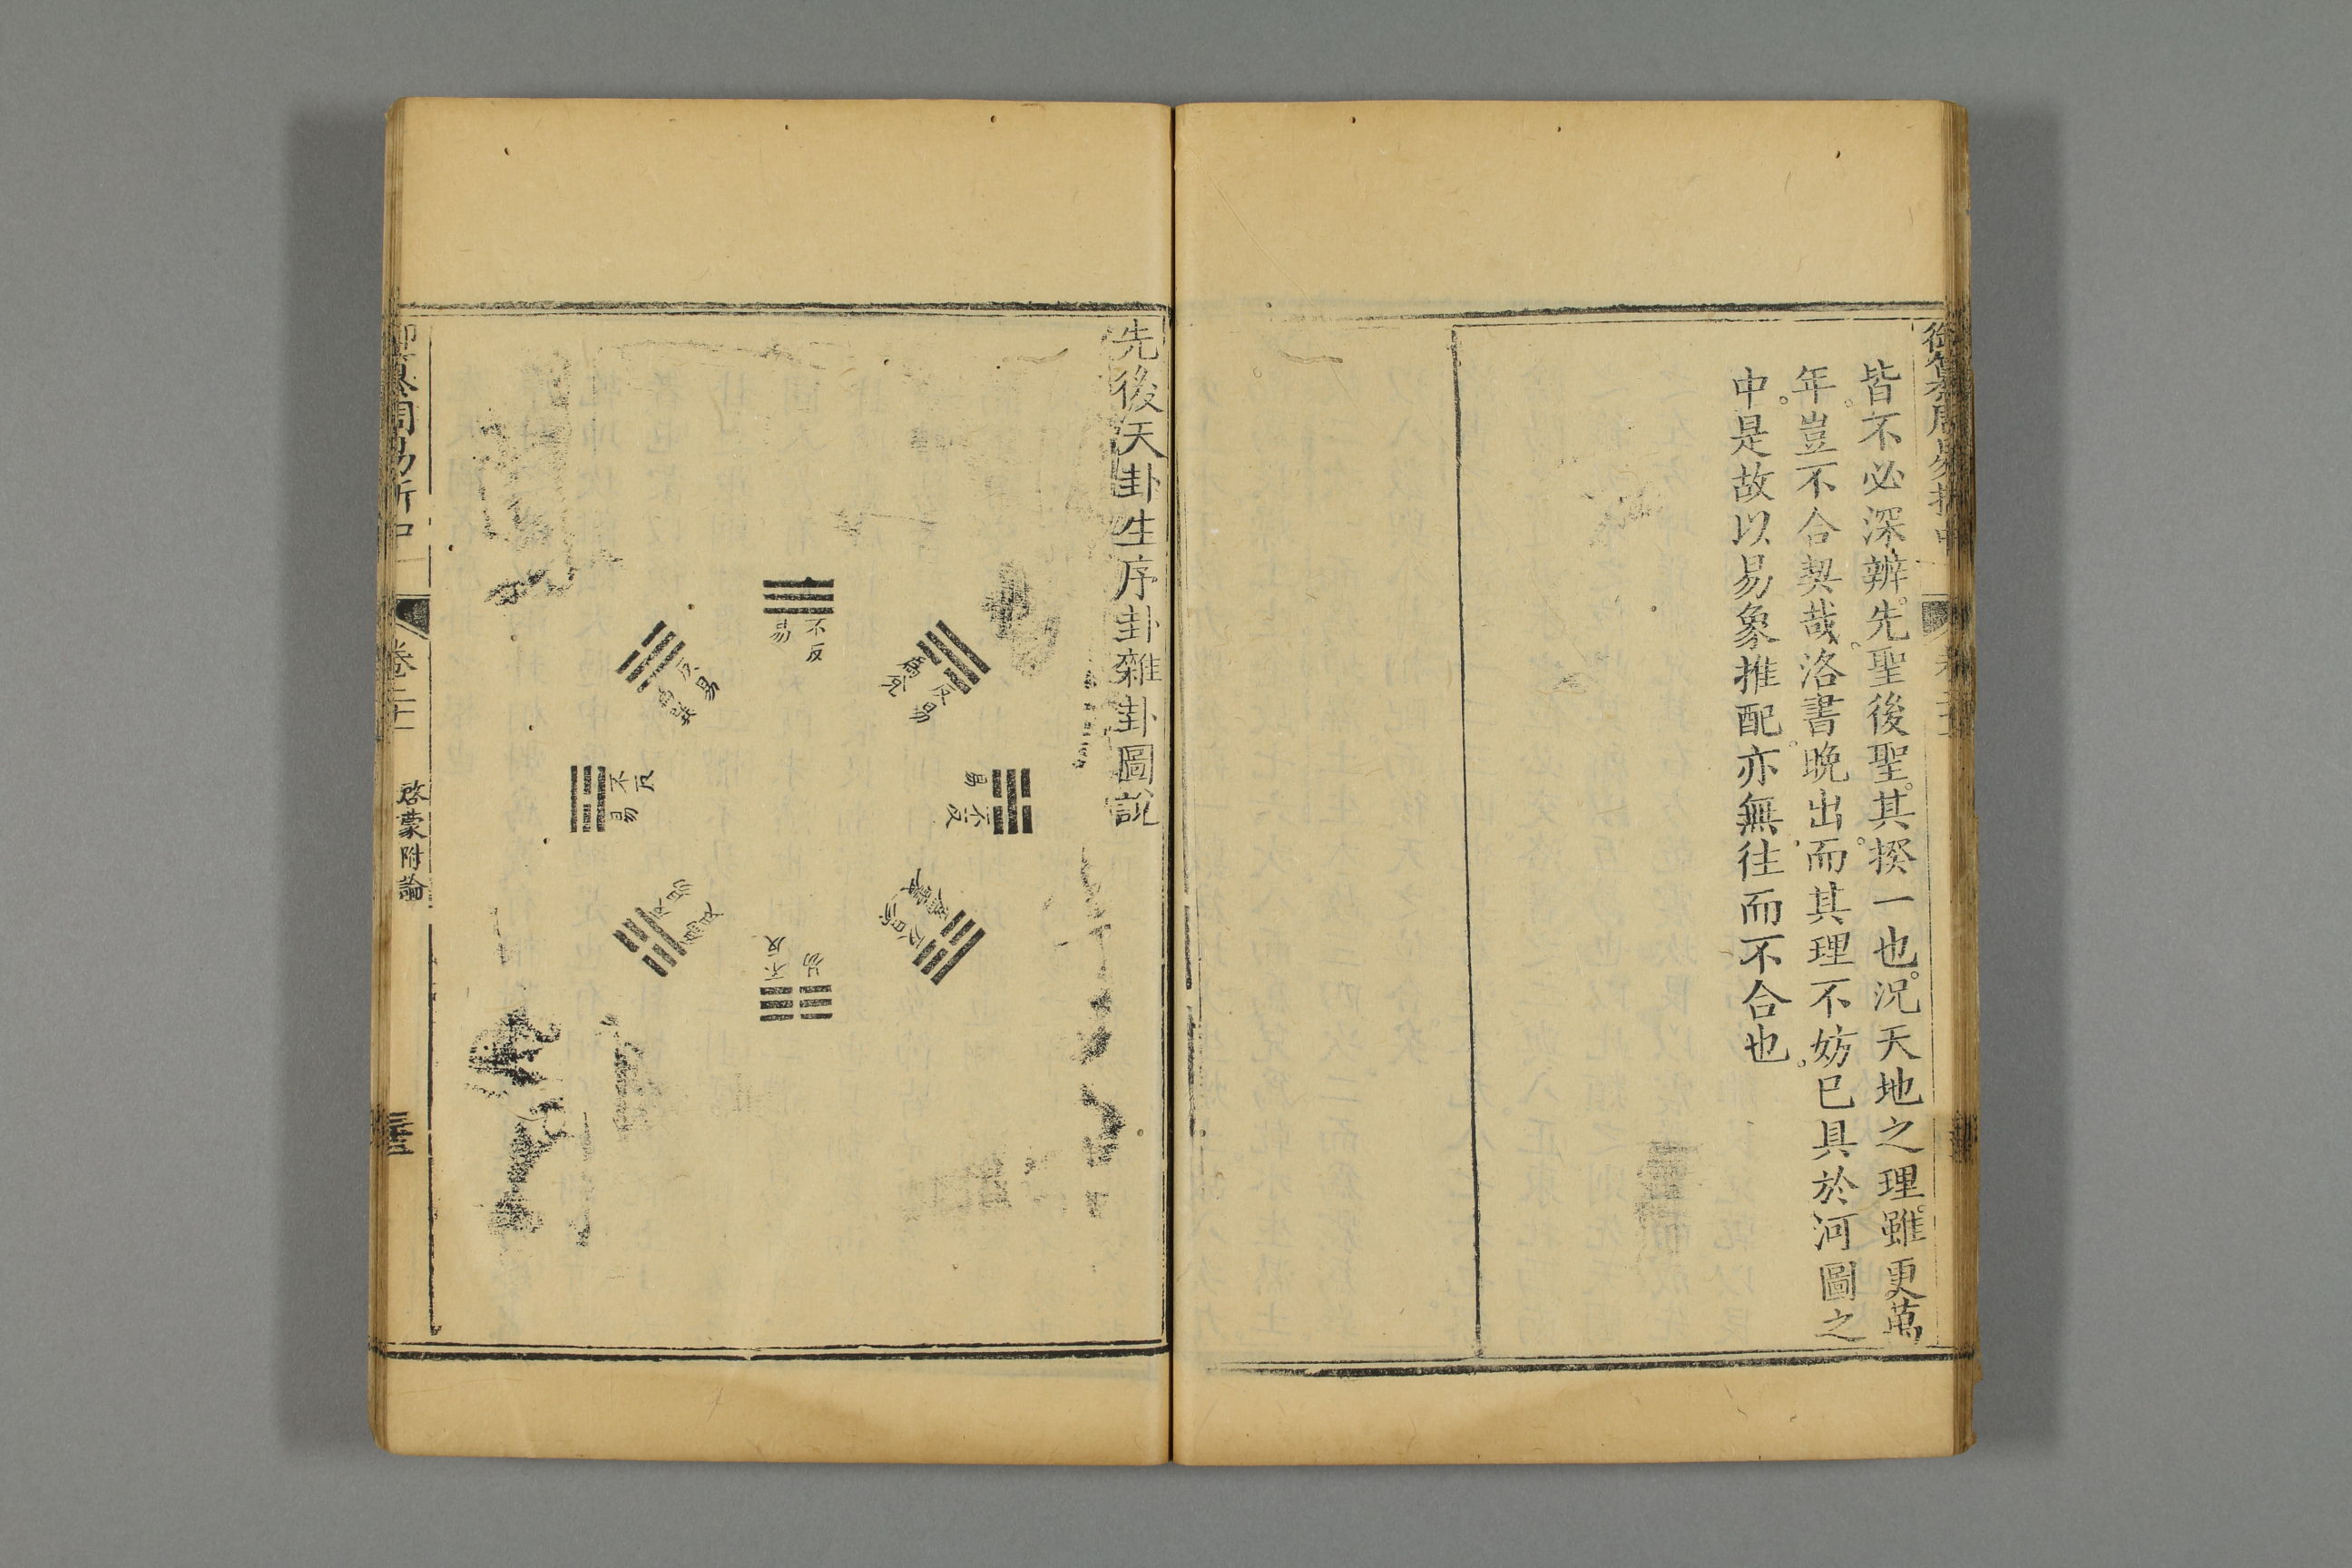 皆不必深辨。先聖後聖。其揆一也。況天地之理。雖更萬
年。豈不合契哉。洛書晚出。而其理不妨已具於河圖之
中。是故以易象推配。亦無往而不合也。
先後天卦生序卦雜卦圖說
不反
易
反易
爲兌
反易
爲巽
易
不反
不反
易
反易
爲震
反易
爲艮
不反
易
御纂周易折中
卷二十一
啓蒙附論
三十三